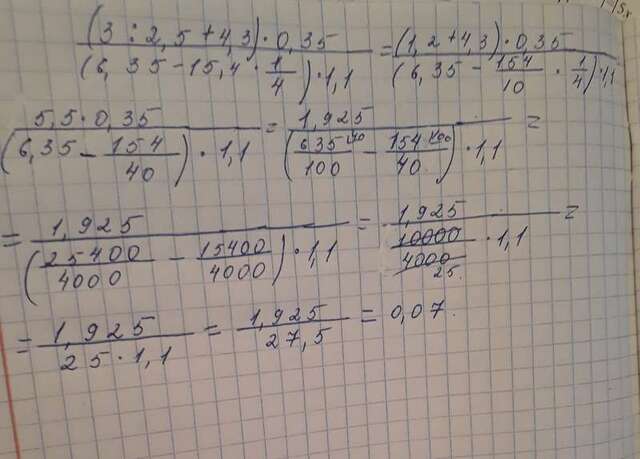 (3 : 2,5 + 4,3) · 0,35 / (6,35 - 15,4 · 1/4) · 1,1 = (1,2 + 4,3) · 0,35 / (6,35 - 154/10 · 1/4) · 1,1
5,5 · 0,35 / (6,35 - 154/40) · 1,1 = 1,925 / (635/100 - 154/40) · 1,1 =
= 1,925 / (25400/4000 - 15400/4000) · 1,1 = 1,925 / 10000/4000 25 · 1,1 =
= 1,925 / 25 · 1,1 = 1,925 / 27,5 = 0,07.